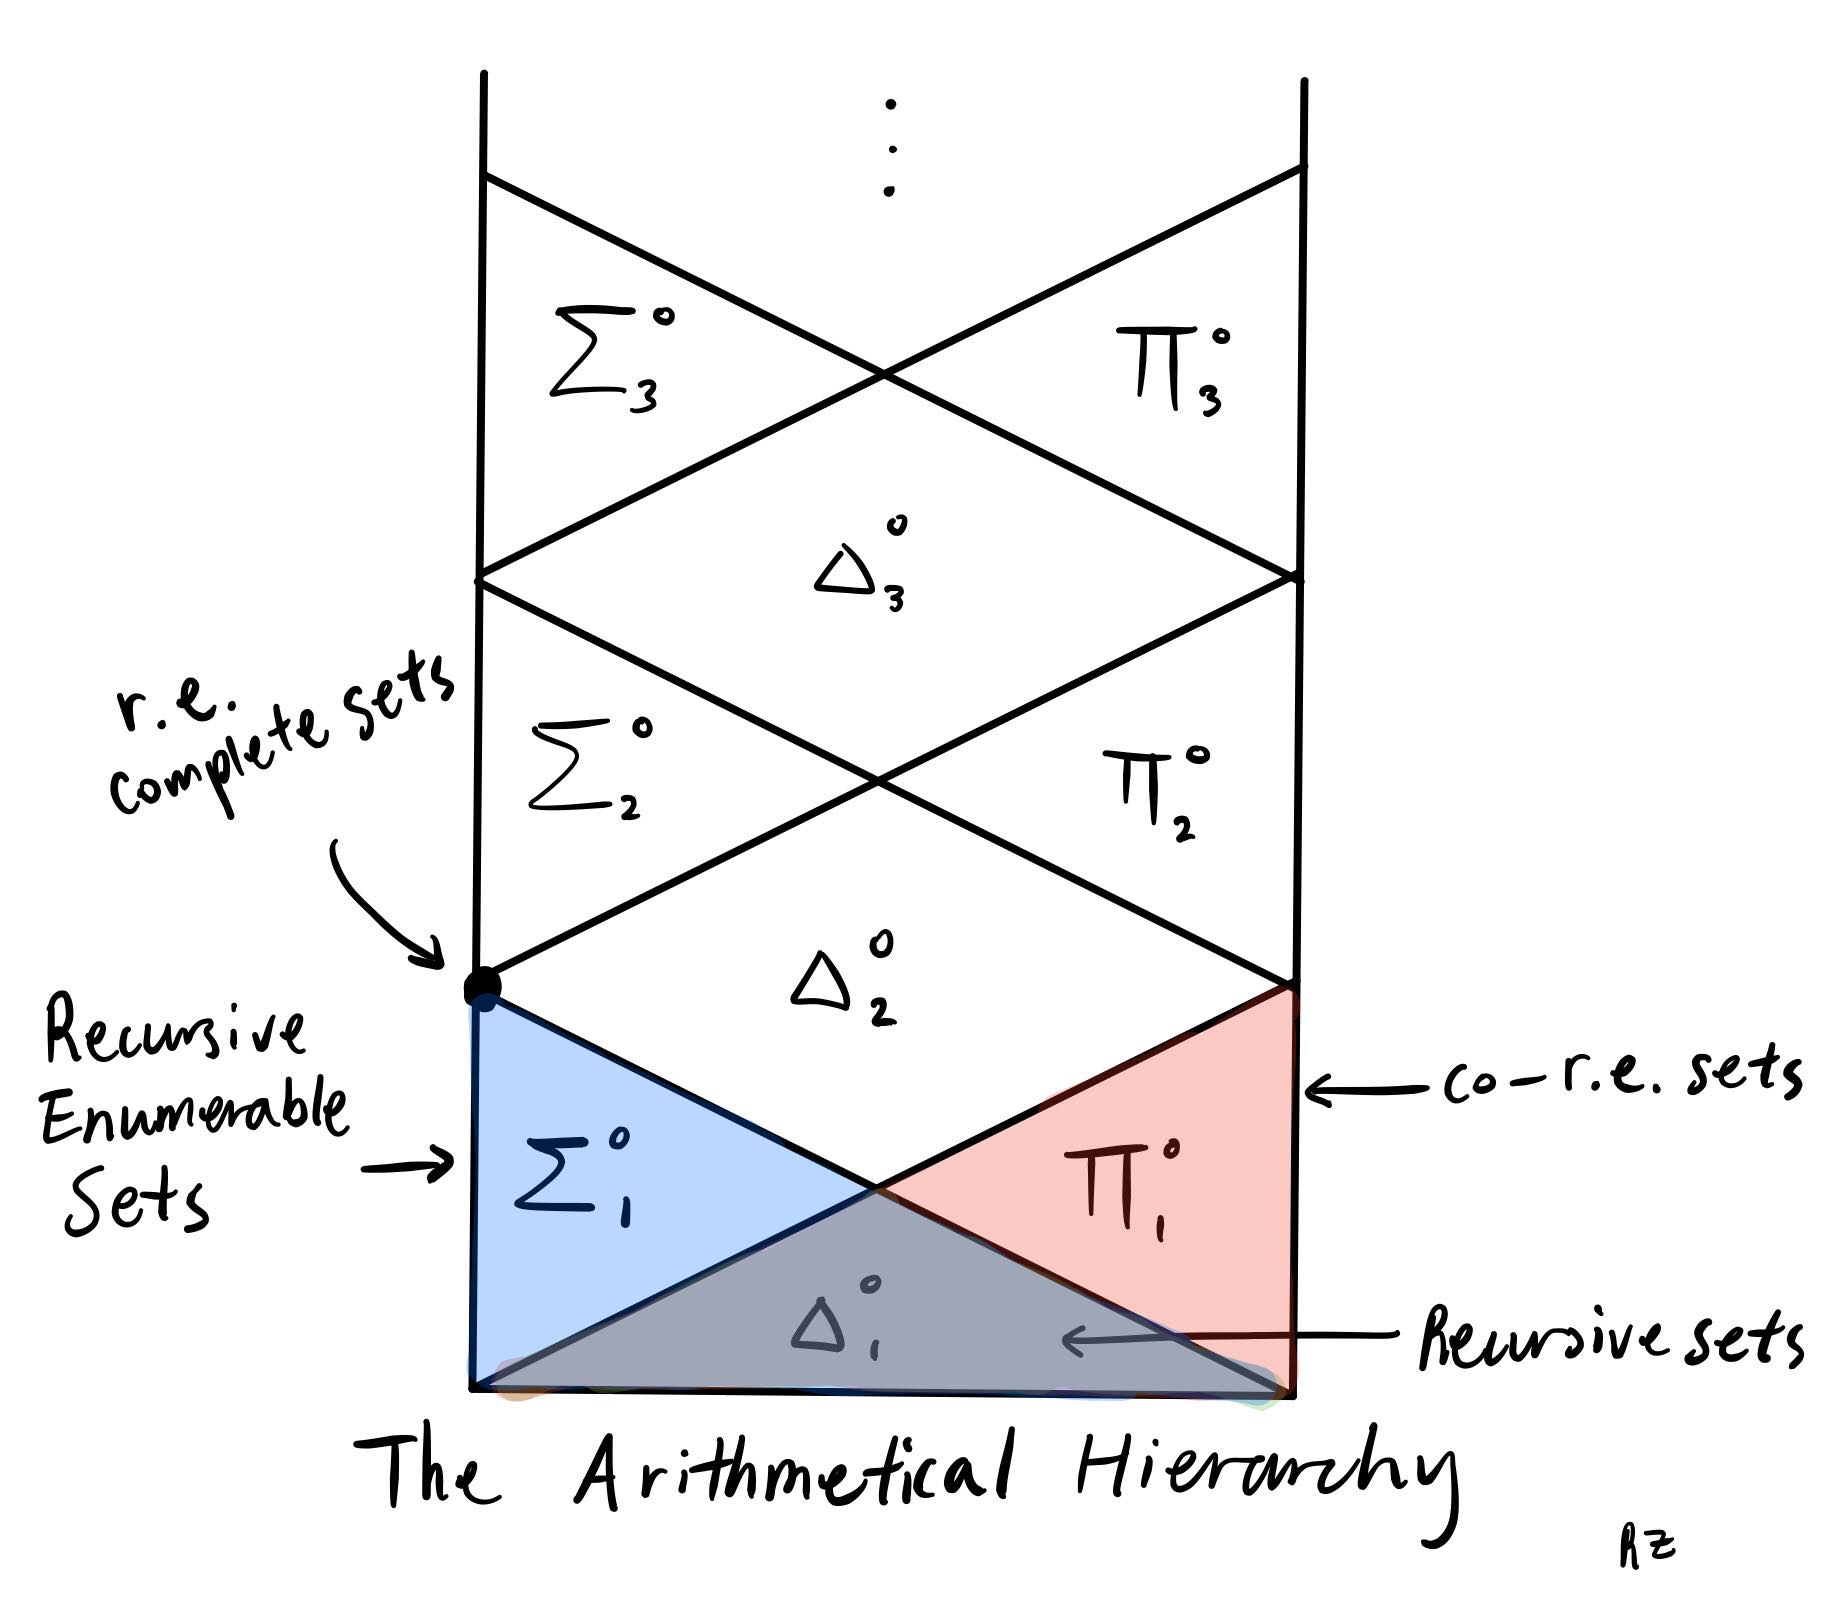 Σ⁰₃
Π⁰₃
Δ⁰₃
r.e.
complete sets
Σ⁰₂
Π⁰₂
Δ⁰₂
Recursive
Enumerable
Sets
co-r.e. sets
Σ⁰₁
Π⁰₁
Δ⁰₁
Recursive sets
The Arithmetical Hierarchy
RZ